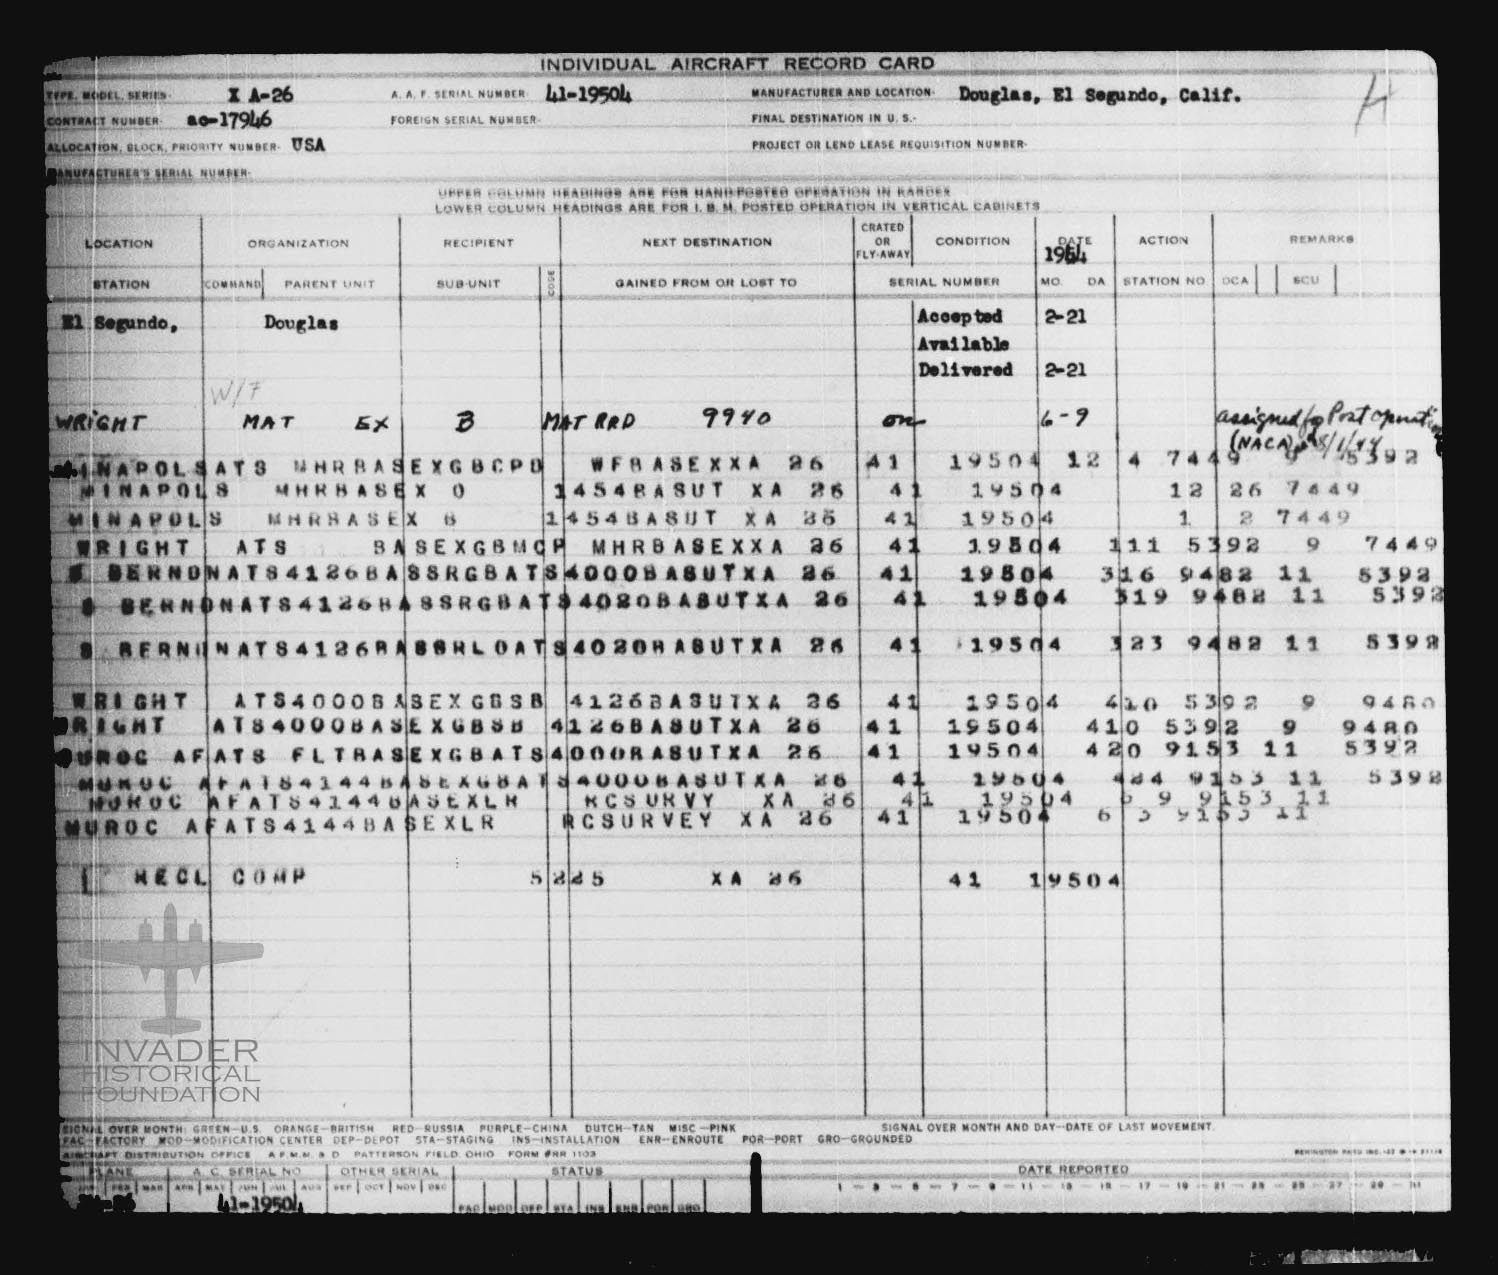 INDIVIDUAL AIRCRAFT RECORD CARD
TYPE, MODEL, SERIES- X A-26 A. A. F. SERIAL NUMBER- 41-19504 MANUFACTURER AND LOCATION- Douglas, El Segundo, Calif.
CONTRACT NUMBER- ac-17946 FOREIGN SERIAL NUMBER- FINAL DESTINATION IN U. S.-
ALLOCATION, BLOCK, PRIORITY NUMBER- USA PROJECT OR LEND LEASE REQUISITION NUMBER-
MANUFACTURER'S SERIAL NUMBER-
UPPER COLUMN HEADINGS ARE FOR HAND-POSTED OPERATION IN KARDEX
LOWER COLUMN HEADINGS ARE FOR I. B. M. POSTED OPERATION IN VERTICAL CABINETS
LOCATION ORGANIZATION RECIPIENT NEXT DESTINATION CRATED OR FLY-AWAY CONDITION DATE ACTION REMARKS
STATION COMMAND PARENT UNIT SUB-UNIT CODE GAINED FROM OR LOST TO SERIAL NUMBER MO. DA. STATION NO. OCA SCU
El Segundo, Douglas Accepted 2-21
Available
Delivered 2-21
W/F
WRIGHT MAT EX B MAT RRD 9940 on 6-9 assigned fo Post operation
(NACA) 8/1/44
INAPOLSATS MHRBASEXGBCPD WFBASEXXA 26 41 19504 12 4 7449 9 5392
MINAPOLS MHRBASEX O 1454BASUT XA 26 41 19504 12 26 7449
MINAPOLS MHRBASEX B 1454BASUT XA 26 41 19504 1 2 7449
WRIGHT ATS BASEXGBMCP MHRBASEXXA 26 41 19504 111 5392 9 7449
S BERNDNATS4126BASSRGBATS4000BASUTXA 26 41 19504 316 9482 11 5392
S BERNDNATS4126BASSRGBATS4020BASUTXA 26 41 19504 319 9482 11 5392
S BERNDNATS4126BASSRLOATS4020BASUTXA 26 41 19504 323 9482 11 5392
WRIGHT ATS4000BASEXGBSB 4126BASUTXA 26 41 19504 410 5392 9 9480
WRIGHT ATS4000BASEXGBSB 4126BASUTXA 26 41 19504 410 5392 9 9480
MUROC AFATS FLTBASEXGBATS4000BASUTXA 26 41 19504 420 9153 11 5392
MUROC AFATS4144BASEXGBATS4000BASUTXA 26 41 19504 424 9153 11 5392
MUROC AFATS4144BASEXLR RCSURVY XA 26 41 19504 6 9 9153 11
MUROC AFATS4144BASEXLR RCSURVEY XA 26 41 19504 6 5 9153 11
RECL COMP 5225 XA 26 41 19504
INVADER
HISTORICAL
FOUNDATION
SIGNAL OVER MONTH: GREEN—U.S. ORANGE—BRITISH RED—RUSSIA PURPLE—CHINA DUTCH—TAN MISC—PINK SIGNAL OVER MONTH AND DAY—DATE OF LAST MOVEMENT.
FAC—FACTORY MOD—MODIFICATION CENTER DEP—DEPOT STA—STAGING INS—INSTALLATION ENR—ENROUTE POR—PORT GRO—GROUNDED
AIRCRAFT DISTRIBUTION OFFICE A.F.M.M. & D PATTERSON FIELD, OHIO FORM #RR 1103
PLANE A. C. SERIAL NO. OTHER SERIAL STATUS DATE REPORTED
JAN FEB MAR APR MAY JUN JUL AUG SEP OCT NOV DEC 1 — 3 — 5 — 7 — 9 — 11 — 13 — 15 — 17 — 19 — 21 — 23 — 25 — 27 — 29 — 31
41-19504 FAC MOD DEP STA INS ENR POR GRO